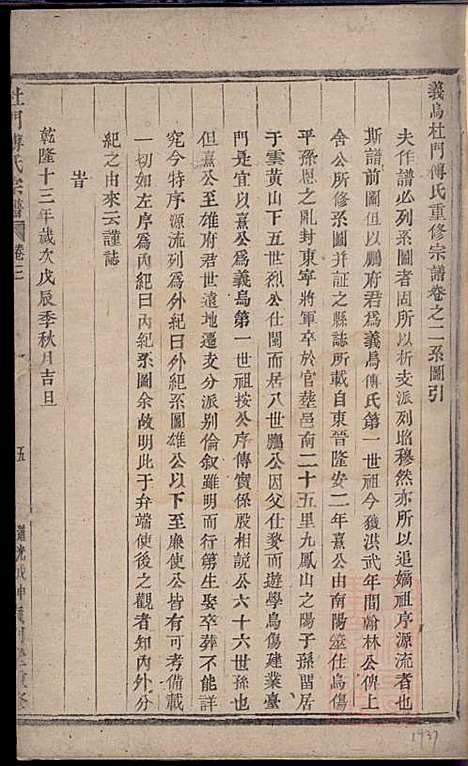 義烏杜門傅氏重修宗譜卷之二系圖引
夫作譜必列系圖者固所以析支派列昭穆然亦所以追嫡祖序源流者也
斯譜前圖但以鵬府君為義烏傅氏第一世祖今獲洪武年間翰林公俾上
舍公所修系圖并証之縣誌所載自東晉隆安二年熹公由南陽筮仕烏傷
平孫恩之亂封東寧將軍卒於官塟邑南二十五里九鳳山之陽子孫留居
于雲黃山下五世烈公仕閩而居八世鵬公因父仕婺而遊學烏傷建業臺
門是宜以熹公為義烏第一世祖按公序傳實係殷相說公六十六世孫也
但熹公至雄府君世遠地遷支分派别倫叙雖明而行第生娶卒葬不能詳
究今特序源流列為外紀曰外紀系圖雄公以下至廉使公皆有可考備載
一切如左序為內紀曰內紀系圖余故明此于弁端使後之觀者知內外分
紀之由來云謹誌
旹
乾隆十三年歲次戊辰季秋月吉旦
杜門傅氏宗譜 卷二
五
1937